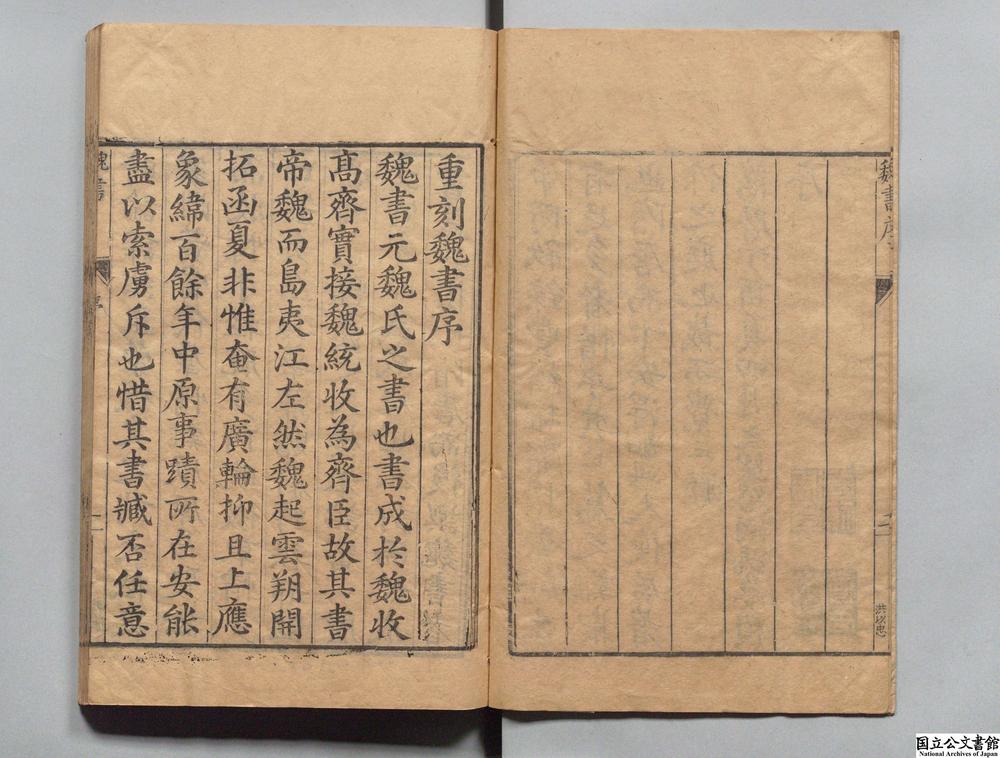 魏書序
洪以忠
重刻魏書序
魏書元魏氏之書也書成於魏收
高齊實接魏統收為齊臣故其書
帝魏而島夷江左然魏起雲朔開
拓函夏非惟奄有廣輪抑且上應
象緯百餘年中原事蹟所在安能
盡以索虜斥也惜其書臧否任意
魏書
序
一
国立公文書館
National Archives of Japan